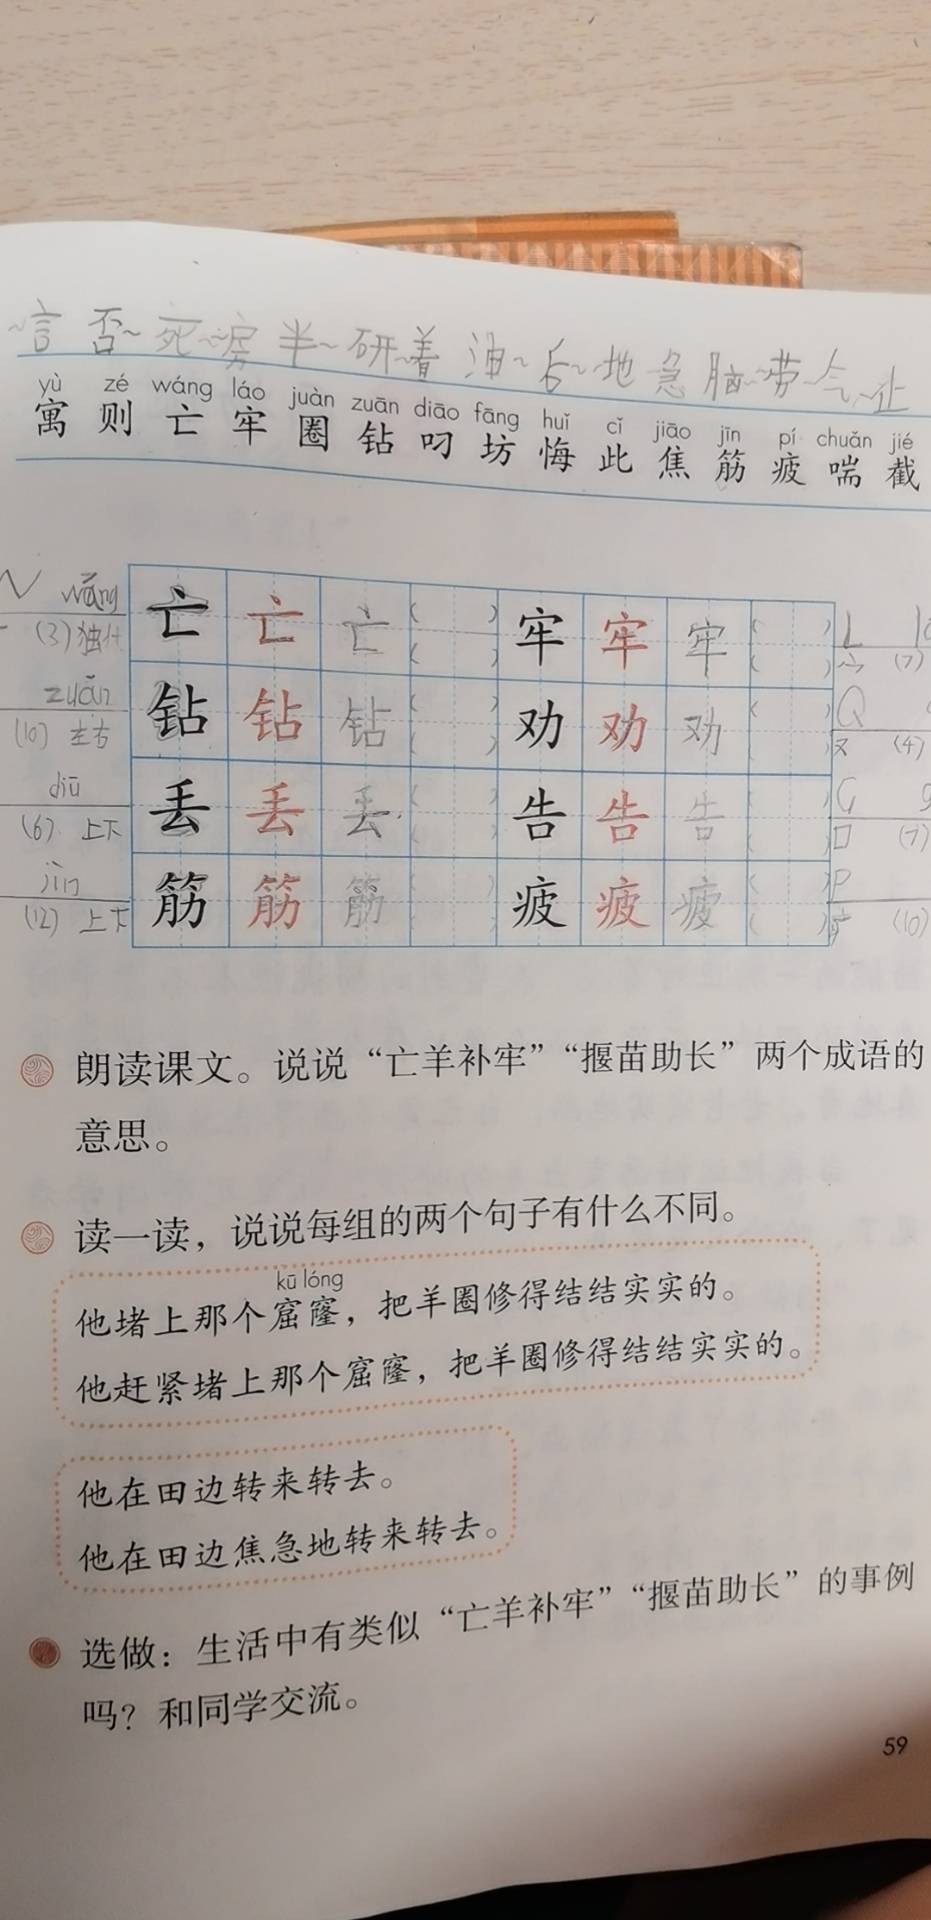 ~言 否~ 死~ ~房 半~ 研~ ~着 油~ 后~ ~地 ~急 ~脑 ~劳 ~气 ~止
yù zé wáng láo juàn zuān diāo fāng huǐ cǐ jiāo jīn pí chuǎn jié
寓 则 亡 牢 圈 钻 叼 坊 悔 此 焦 筋 疲 喘 截
wáng 亡 亡 亡 ( ) 牢 牢 牢 ( ) L
(3) 独 ( ) ( ) 宀 (7)
zuān 钻 钻 钻 ( ) 劝 劝 劝 ( ) Q
(10) 左右 ( ) ( ) 又 (4)
diū 丢 丢 丢 ( ) 告 告 告 ( ) G g
(6) 上下 ( ) ( ) 口 (7)
jīn 筋 筋 筋 ( ) 疲 疲 疲 ( ) P
(12) 上下 ( ) ( ) (10)
朗读课文。说说“亡羊补牢”“揠苗助长”两个成语的
意思。
读一读，说说每组的两个句子有什么不同。
kū lóng
他堵上那个窟窿，把羊圈修得结结实实的。
他赶紧堵上那个窟窿，把羊圈修得结结实实的。
他在田边转来转去。
他在田边焦急地转来转去。
选做：生活中有类似“亡羊补牢”“揠苗助长”的事例
吗？和同学交流。
59